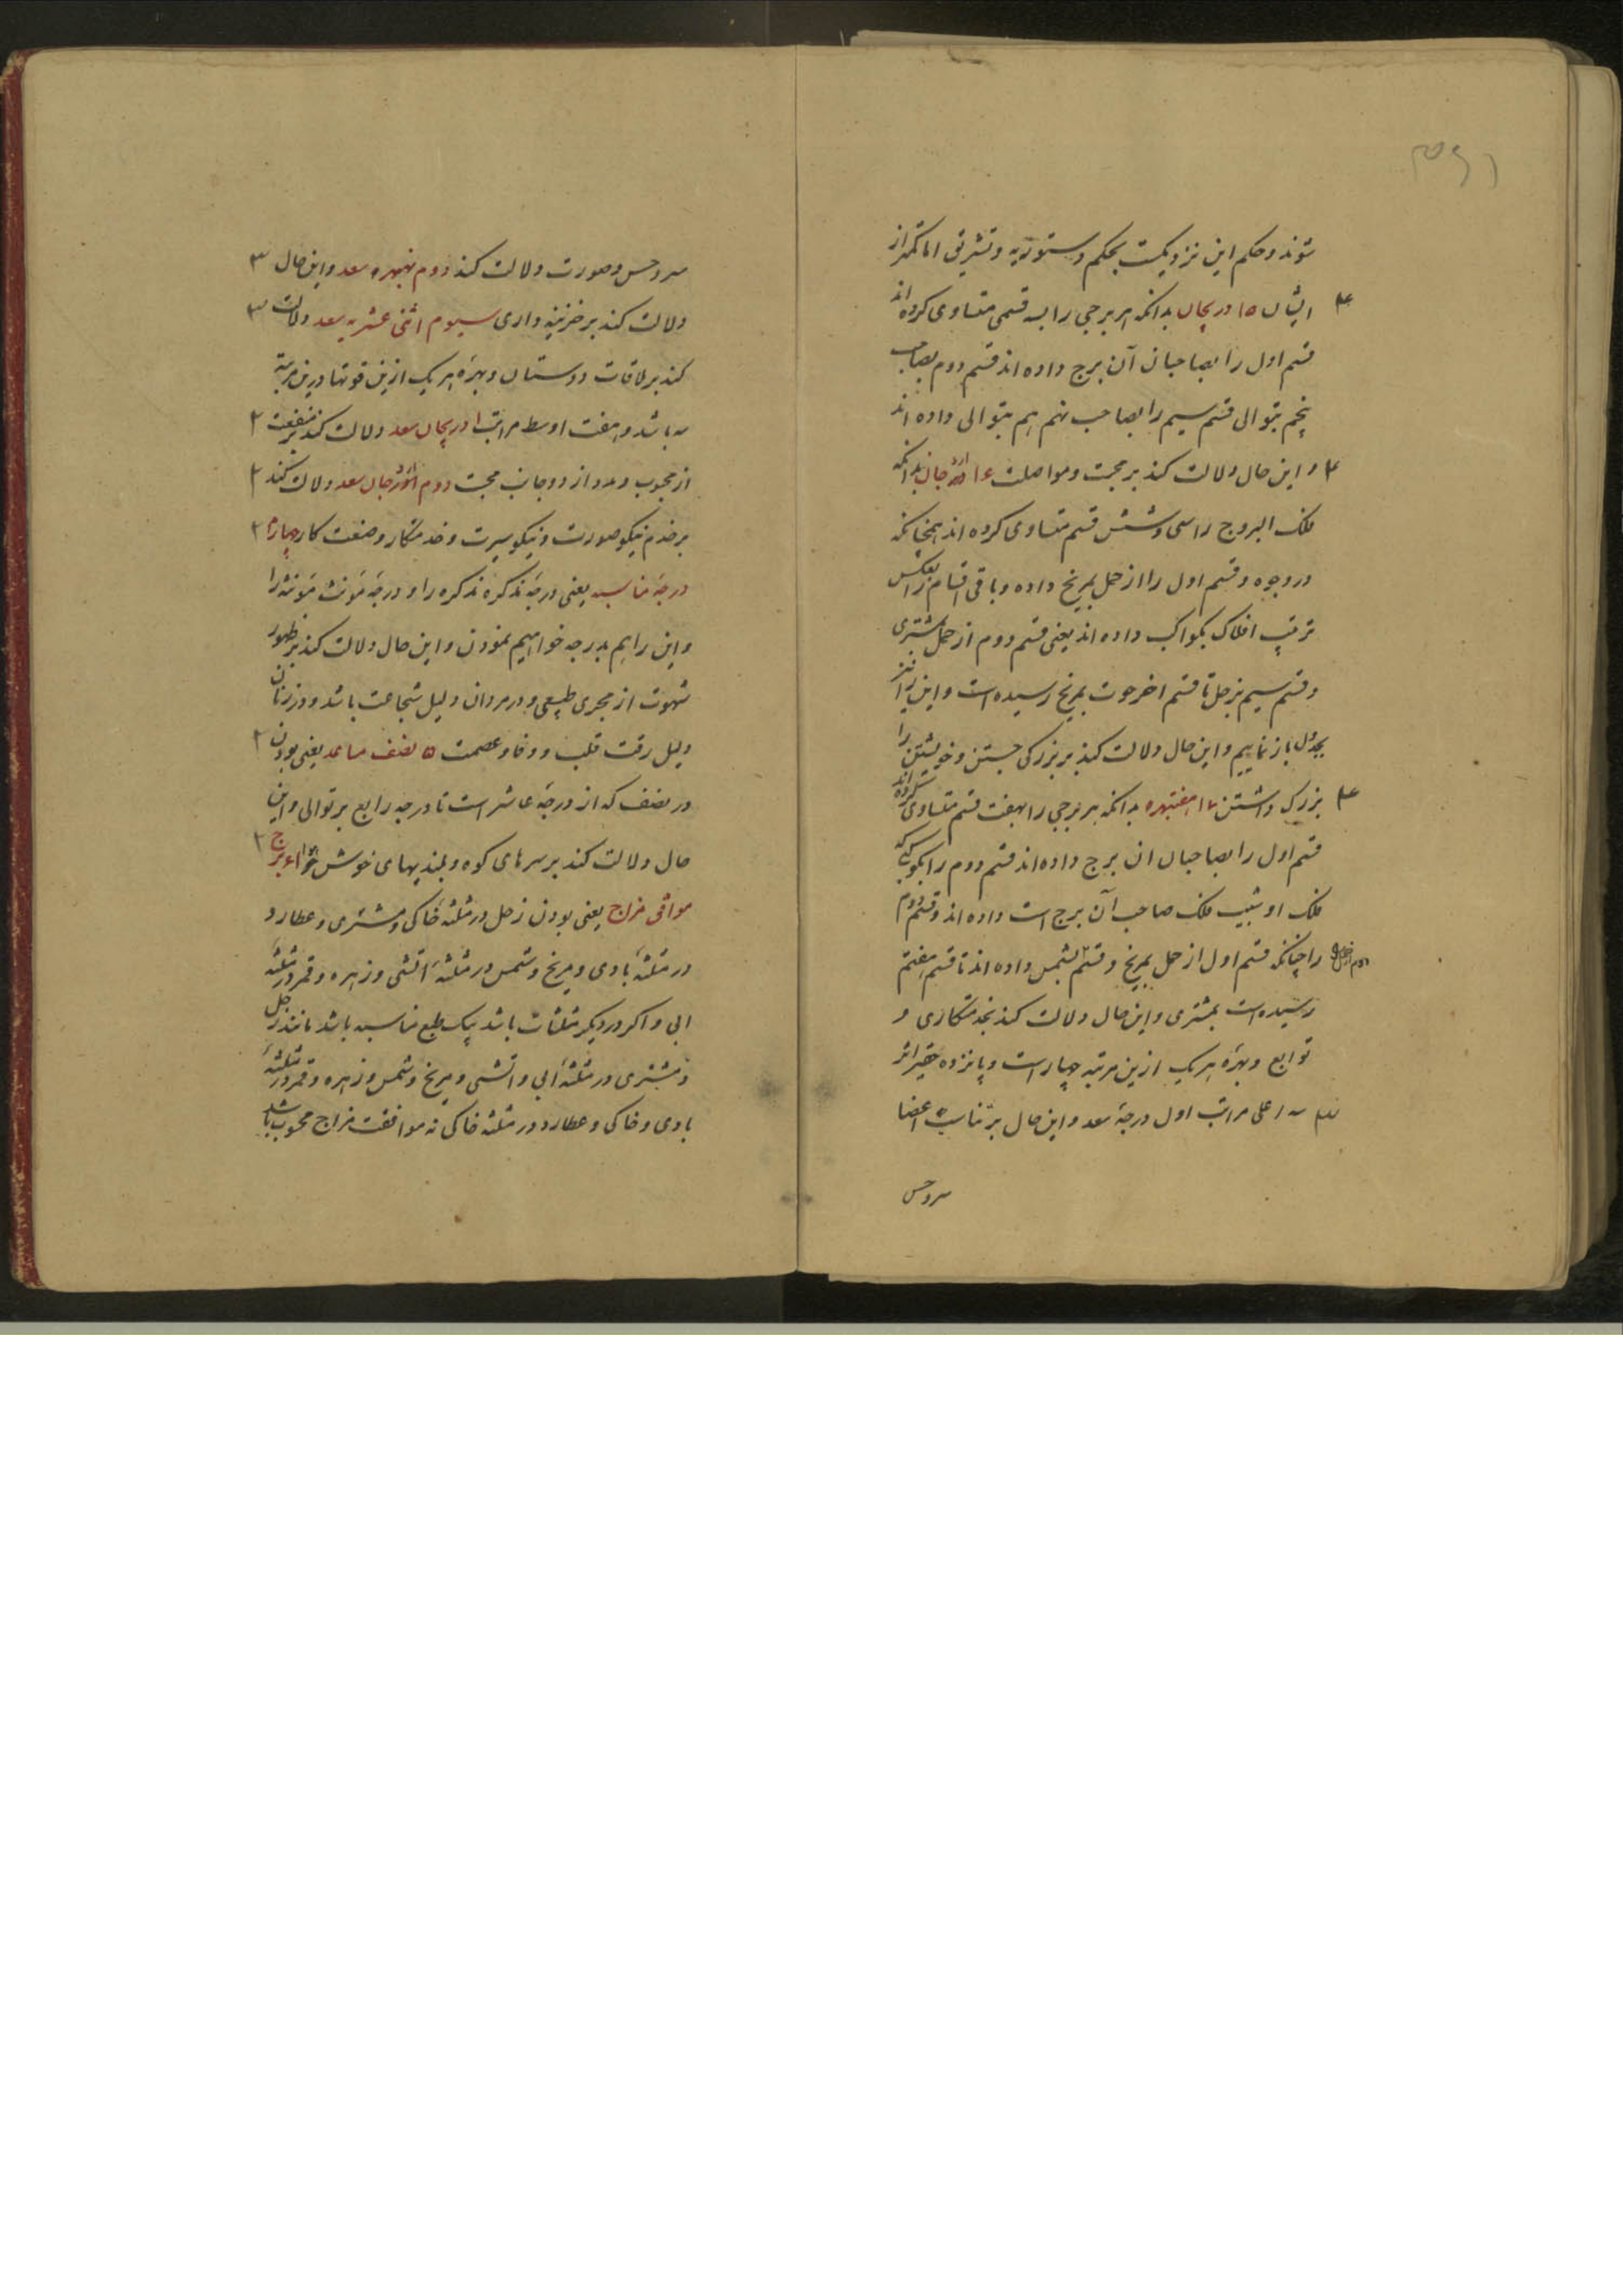 شوند و حکم این نزدیکست بحکم دستوریه و تشریق اما کمتر از
ایشان ۱۵ دریجان بدانکه هر برجی را بسه قسمی متساوی کرده‌اند
قسم اول را بصاحبان آن برج داده اند قسم دوم بصاحب
پنجم بتوالی قسم سیم را بصاحب نهم هم بتوالی داده اند
و این حال دلالت کند بر محبت و مواصلت ۱۶ بدانکه
فلک البروج را سی و شش قسم متساوی کرده اند همچنانکه
در وجوه و قسم اول را از حمل بمریخ داده و باقی اقسام را بعکس
ترتیب افلاک بکواکب داده اند یعنی قسم دوم از حمل بمشتری
و قسم سیم بزحل تا قسم اخر حوت بمریخ رسیده است و این را نیز
بجدول باز نماییم و این حال دلالت کند بر بزرگی جستن و خویشتن را
بزرک داشتن ۱۷ هفتبهره بدانکه هر برجی را بهفت قسم متساوی کرده‌اند
قسم اول را بصاحبان ان برج داده اند قسم دوم را بکوکبی که
فلک او شیب فلک صاحب آن برج است داده اند و قسم دوم
را چنانکه قسم اول از حمل بمریخ و قسم بشمس داده اند تا قسم هفتم
رسیده است بمشتری و این حال دلالت کند بخدمتکاری و
توابع و بهره هر یک ازین مرتبه چهار است و پانزده
اعلی مراتب اول درجهٔ سعد و این حال بر تناسب اعضا
سر و حسن
سر و حسن و صورت دلالت کند دوم نهبهره سعد و این حال ۳
دلالت کند بر خزینه داری سیوم اثنی عشریه سعد دلالت ۳
کند بر ملاقات دوستان و بهرهٔ هر یک ازین قوتها درین مرتبه
سه باشد و هفت اوسط مراتب ا دریجان سعد دلالت کند بر منفعت ۲
از محبوب و مدد از دو جانب محبت دوم سعد دلالت کند ۲
بر خدم نیکو صورت و نیکو سیرت و خدمتکار و صنعت کار چهارم ۲
درجهٔ مناسبه یعنی درجهٔ مذکره مذکره را و درجهٔ مؤنث مؤنثه را
و این را هم بدرجه خواهیم نمودن و این حال دلالت کند بر ظهور
شهوت از مجری طبیعی و در مردان دلیل شجاعت باشد و در زنان
دلیل رقت قلب و وفا و عصمت ۵ نصف صاعد یعنی بودن ۲
در نصف که از درجهٔ عاشر است تا درجه رابع بر توالی و این
حال دلالت کند بر سرهای کوه و بلندیهای خوش برج ۲
موافق مزاج یعنی بودن زحل در مثلثهٔ خاکی و مشتری و عطارد
در مثلثهٔ بادی و مریخ و شمس در مثلثهٔ اتشی و زهره و قمر در مثلثهٔ
ابی و اکر در دیکر مثلثات باشد بیک طبع مناسبه باشد مانند زحل
و مشتری در مثلثهٔ ابی و اتشی و مریخ و شمس و زهره و قمر در مثلثهٔ
بادی و خاکی و عطارد در مثلثه خاکی نه موافقت مزاج محسوب باشد